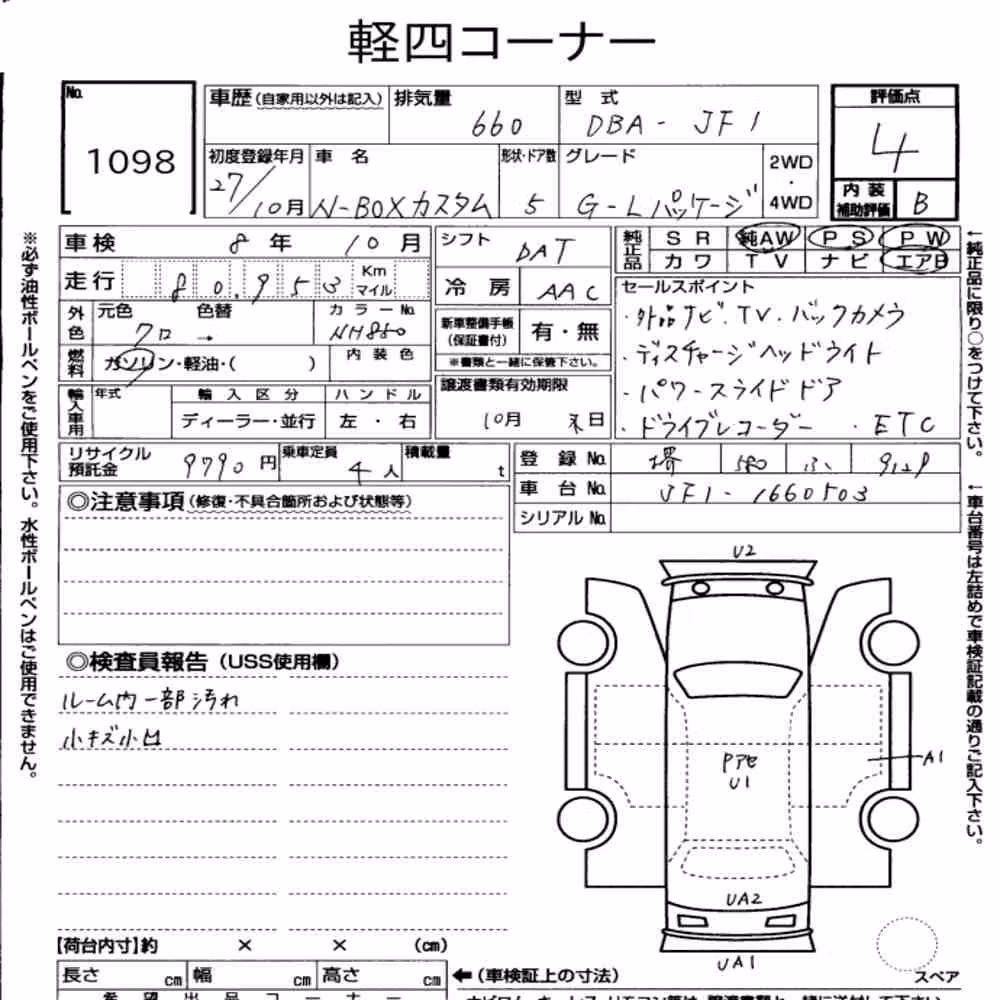 軽四コーナー
No. 1098
車歴(自家用以外は記入) 排気量 660 型式 DBA-JF1
初度登録年月 27/10月 車名 N-BOXカスタム 形状・ドア数 5 グレード G-Lパッケージ 2WD・4WD
評価点 4
内装補助評価 B
車検 8年 10月 シフト DAT
走行 80,953 Km マイル 冷房 AAC
純正品 SR 純AW PS PW
カワ TV ナビ エアB
外色 元色 クロ 色替 → カラーNo. NH880
燃料 ガソリン・軽油・( ) 内装色
新車整備手帳(保証書付) 有・無
※書類と一緒に保管下さい。
セールスポイント
・外品ナビ.TV.バックカメラ
・ディスチャージヘッドライト
・パワースライドドア
・ドライブレコーダー ・ETC
輸入車用 年式 輸入区分 ハンドル
ディーラー・並行 左・右
譲渡書類有効期限
10月 末日
リサイクル預託金 9790円 乗車定員 4人 積載量 t
登録No. 堺 580 ふ
車台No. JF1-1660503
シリアルNo.
◎注意事項(修復・不具合箇所および状態等)
◎検査員報告(USS使用欄)
ルーム内一部汚れ
小キズ小凹
U2
Pアセ
U1
A1
UA2
UA1
スペア
【荷台内寸】約 × × (cm)
長さ cm 幅 cm 高さ cm ←(車検証上の寸法)
希望出品コーナー
※必ず油性ボールペンをご使用下さい。水性ボールペンはご使用できません。
←純正品に限り○をつけて下さい。
←車台番号は左詰めで車検証記載の通りご記入下さい。